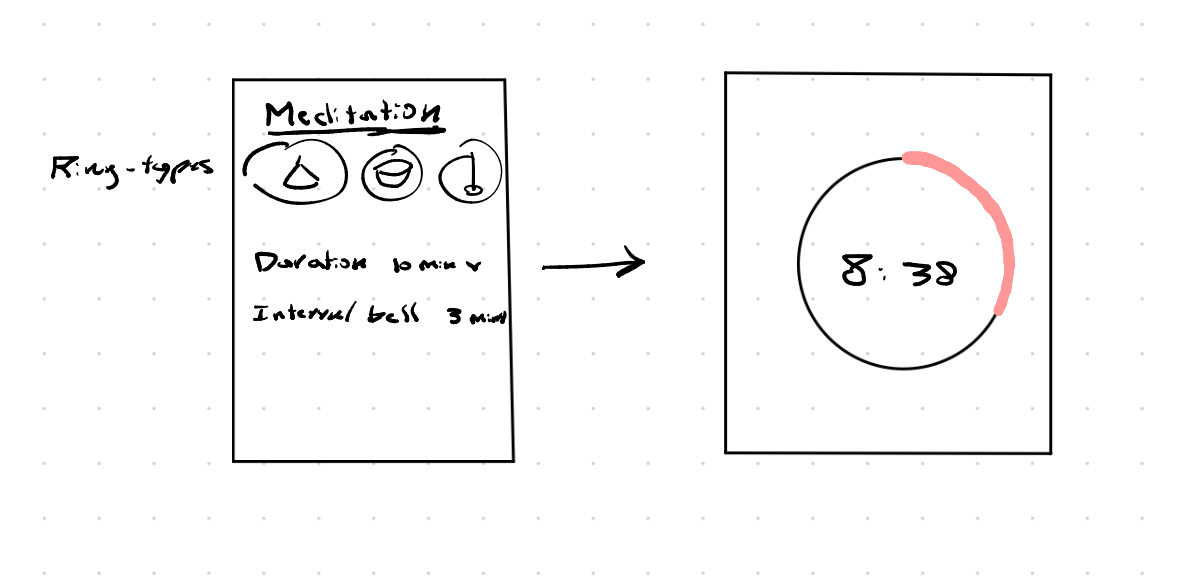 Meditation
Ring-types
Duration 10 min v
Interval bell 3 min
8:38